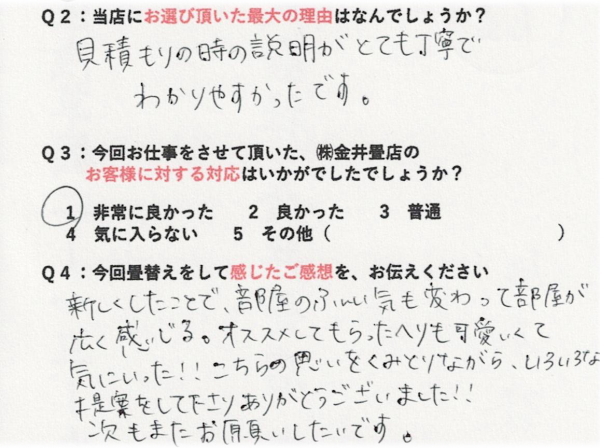 Q2：当店にお選び頂いた最大の理由はなんでしょうか？
見積もりの時の説明がとても丁寧で
わかりやすかったです。
Q3：今回お仕事をさせて頂いた、㈱金井畳店の
お客様に対する対応はいかがでしたでしょうか？
1 非常に良かった 2 良かった 3 普通
4 気に入らない 5 その他（ ）
Q4：今回畳替えをして感じたご感想を、お伝えください
新しくしたことで、部屋のふんい気も変わって部屋が
広く感じる。オススメしてもらったヘリも可愛いくて
気にいった!!こちらの思いをくみとりながら、いろいろな
提案をして下さりありがとうございました!!
次もまたお願いしたいです。